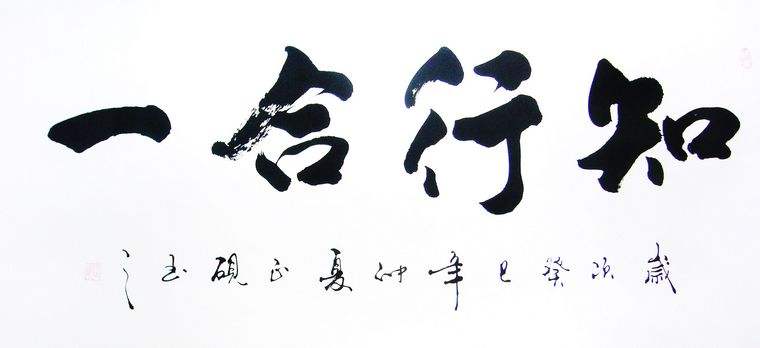 知行合一
歲次癸巳年仲夏正砚书之